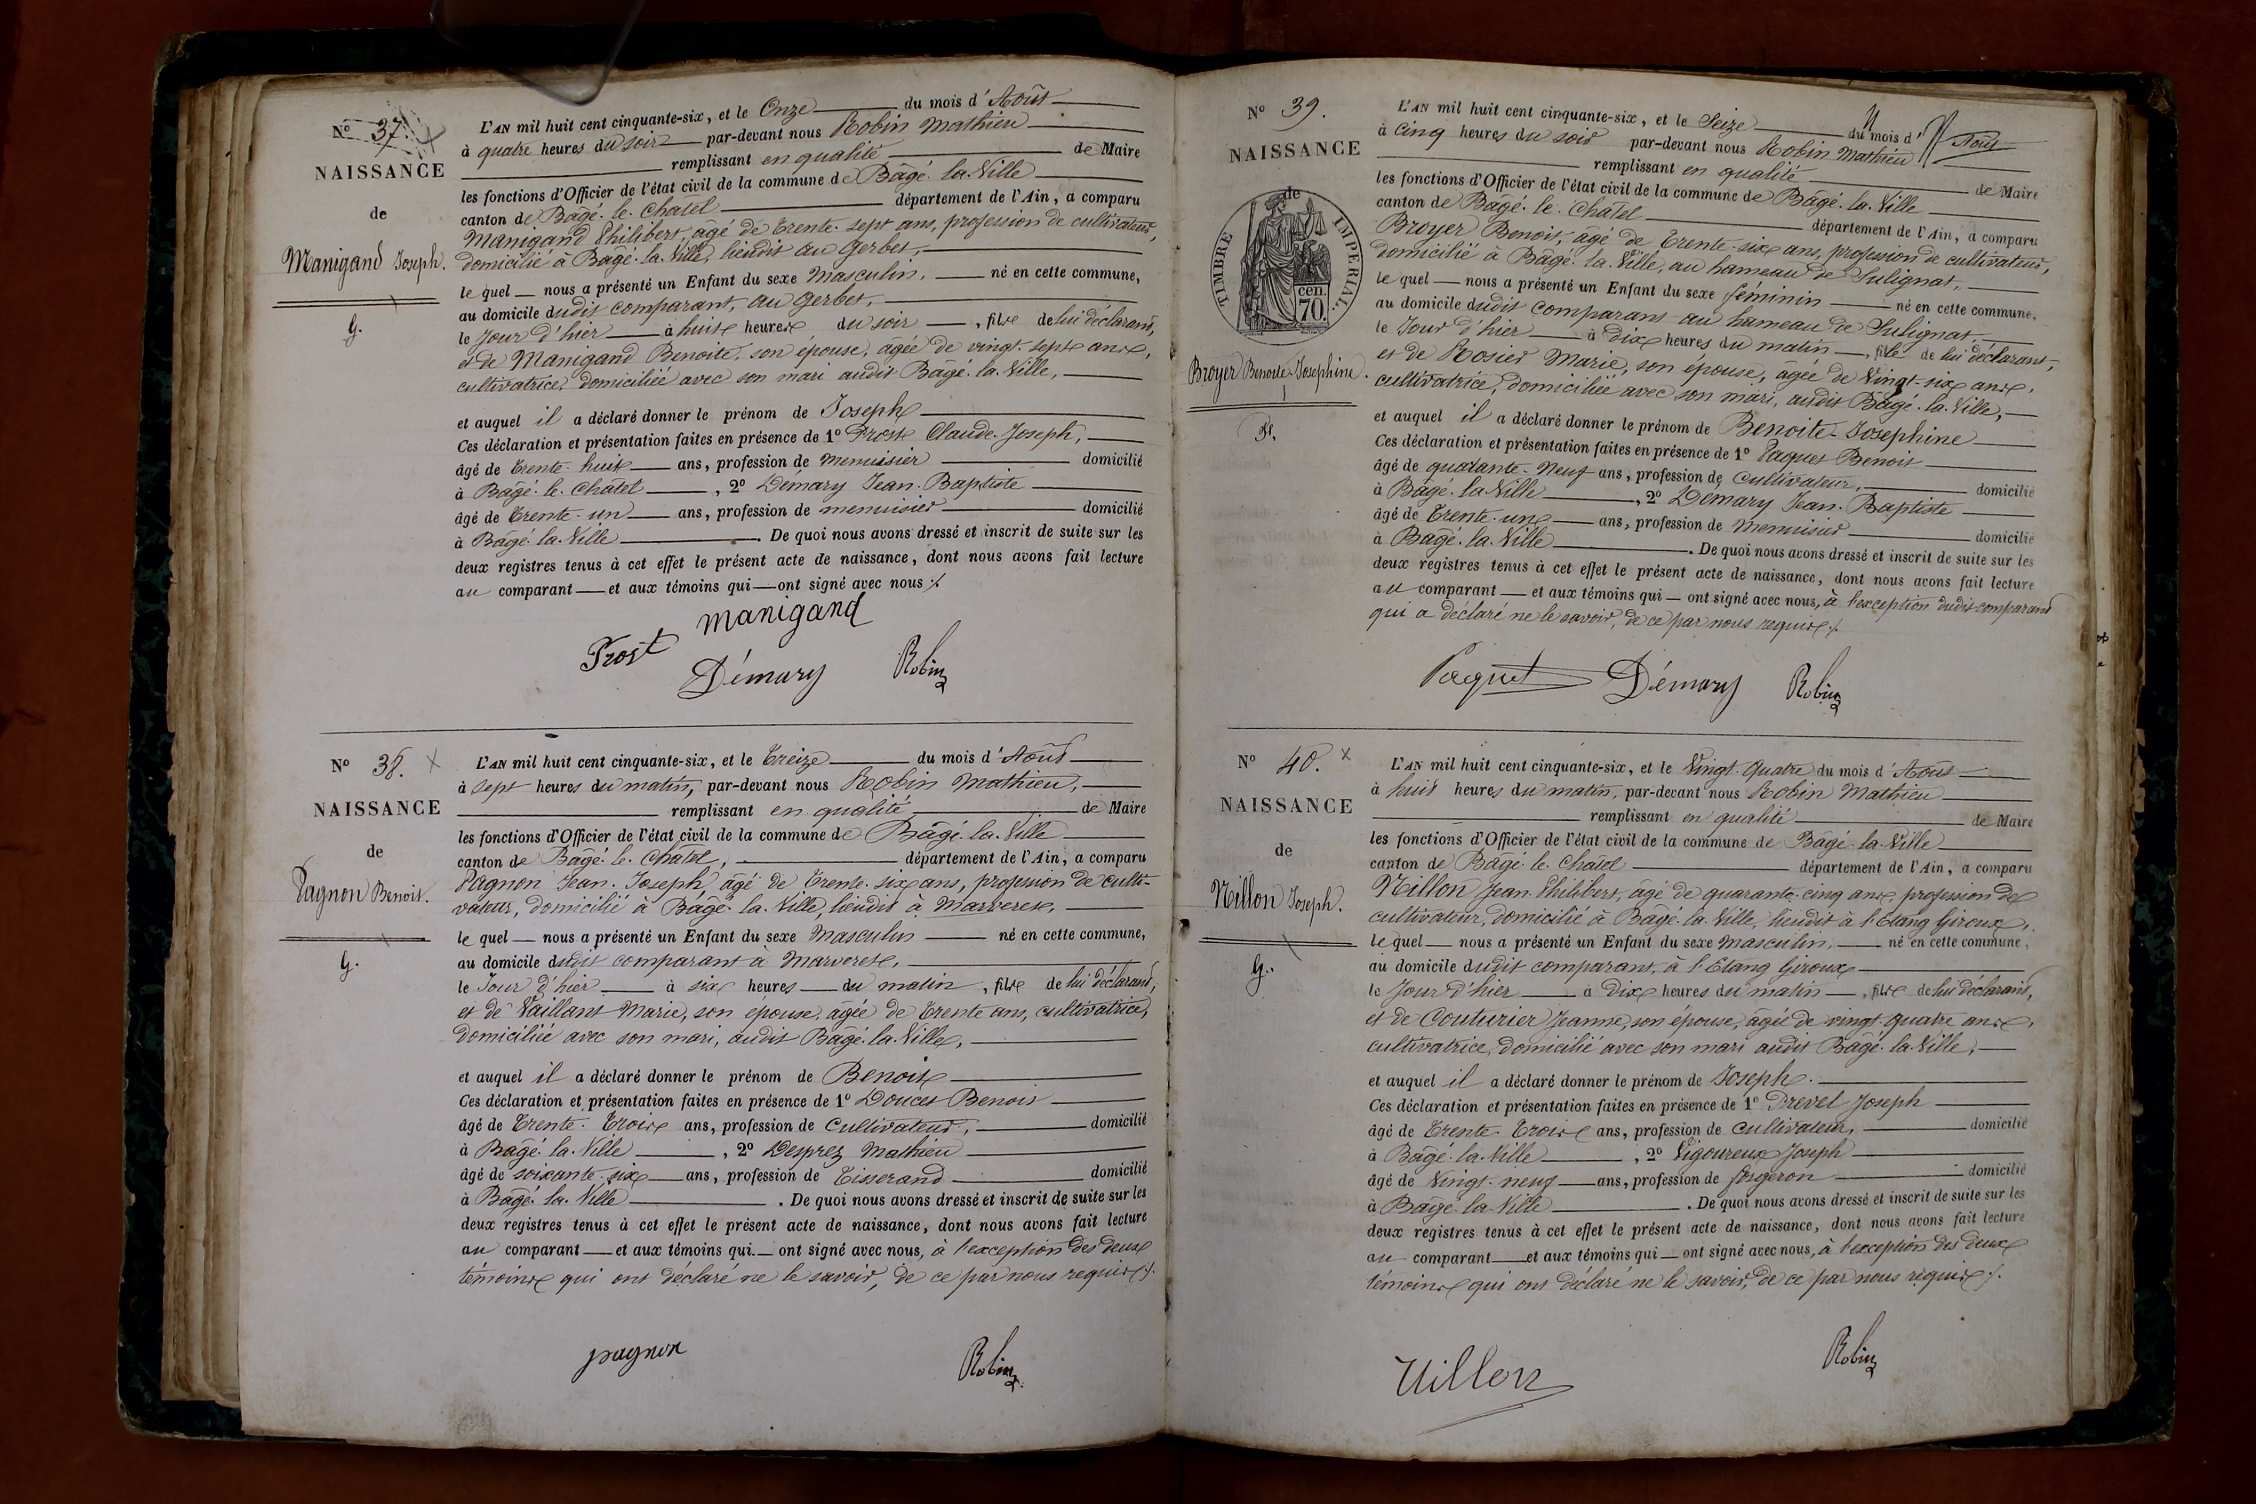 Nº 37.
NAISSANCE
de
Manigand Joseph.
G.
L'AN mil huit cent cinquante-six, et le Onze du mois d'Août
à quatre heures du soir par-devant nous Robin Mathieu
remplissant en qualité de Maire
les fonctions d'Officier de l'état civil de la commune de Bâgé-la-Ville
canton de Bâgé-le-Chatel département de l'Ain, a comparu
Manigand Philibert, âgé de trente-sept ans, profession de cultivateur,
domicilié à Bâgé-la-Ville, lieudit au Gerbet,
le quel nous a présenté un Enfant du sexe masculin, né en cette commune,
au domicile dudit comparant, au Gerbet,
le jour d'hier à huit heures du soir, fils de lui déclarant,
et de Manigand Benoite, son épouse, âgée de vingt-sept ans,
cultivatrice, domiciliée avec son mari audit Bâgé-la-Ville,
et auquel il a déclaré donner le prénom de Joseph
Ces déclaration et présentation faites en présence de 1º Prost Claude-Joseph,
âgé de trente-huit ans, profession de menuisier domicilié
à Bâgé-le-Chatel, 2º Démary Jean-Baptiste
âgé de trente-un ans, profession de menuisier domicilié
à Bâgé-la-Ville. De quoi nous avons dressé et inscrit de suite sur les
deux registres tenus à cet effet le présent acte de naissance, dont nous avons fait lecture
au comparant et aux témoins qui ont signé avec nous
manigand
Prost
Démary
Robin
Nº 38.
NAISSANCE
de
Pagnon Benoit.
G.
L'AN mil huit cent cinquante-six, et le Treize du mois d'Août
à sept heures du matin, par-devant nous Robin Mathieu,
remplissant en qualité de Maire
les fonctions d'Officier de l'état civil de la commune de Bâgé-la-Ville
canton de Bâgé-le-Chatel, département de l'Ain, a comparu
Pagnon Jean-Joseph, âgé de trente-six ans, profession de culti-
vateur, domicilié à Bâgé-la-Ville, lieudit à Marverex,
le quel nous a présenté un Enfant du sexe Masculin né en cette commune,
au domicile dudit comparant à Marverex,
le Jour d'hier à six heures du matin, fils de lui déclarant,
et de Vaillant Marie, son épouse, âgée de trente ans, cultivatrice,
domiciliée avec son mari, audit Bâgé-la-Ville,
et auquel il a déclaré donner le prénom de Benoit
Ces déclaration et présentation faites en présence de 1º Doucet Benoit
âgé de trente-trois ans, profession de cultivateur, domicilié
à Bâgé-la-Ville, 2º Desprez Mathieu
âgé de soixante-six ans, profession de Tisserand domicilié
à Bâgé-la-Ville. De quoi nous avons dressé et inscrit de suite sur les
deux registres tenus à cet effet le présent acte de naissance, dont nous avons fait lecture
au comparant et aux témoins qui ont signé avec nous, à l'exception des deux
témoins qui ont déclaré ne le savoir, de ce par nous requis
pagnon
Robin
Nº 39.
NAISSANCE
de
TIMBRE IMPERIAL
70 cen.
Broyer Benoite-Josephine.
F.
L'AN mil huit cent cinquante-six, et le Seize du mois d'Août
à cinq heures du soir par-devant nous Robin Mathieu
remplissant en qualité de Maire
les fonctions d'Officier de l'état civil de la commune de Bâgé-la-Ville
canton de Bâgé-le-Châtel département de l'Ain, a comparu
Broyer Benoit, âgé de trente-six ans, profession de cultivateur,
domicilié à Bâgé-la-Ville, au hameau de Sulignat,
le quel nous a présenté un Enfant du sexe féminin né en cette commune,
au domicile dudit comparant au hameau de Sulignat,
le Jour d'hier à dix heures du matin, fille de lui déclarant,
et de Rosier Marie, son épouse, âgée de Vingt-six ans,
cultivatrice, domiciliée avec son mari, audit Bâgé-la-Ville,
et auquel il a déclaré donner le prénom de Benoite-Josephine
Ces déclaration et présentation faites en présence de 1º Paquet Benoit
âgé de quarante-neuf ans, profession de cultivateur, domicilié
à Bâgé-la-Ville, 2º Demary Jean-Baptiste
âgé de trente-un ans, profession de menuisier domicilié
à Bâgé-la-Ville. De quoi nous avons dressé et inscrit de suite sur les
deux registres tenus à cet effet le présent acte de naissance, dont nous avons fait lecture
au comparant et aux témoins qui ont signé avec nous, à l'exception dudit comparant
qui a déclaré ne le savoir, de ce par nous requis
Paquet
Démary
Robin
Nº 40.
NAISSANCE
de
Villon Joseph.
G.
L'AN mil huit cent cinquante-six, et le Vingt-Quatre du mois d'Août
à huit heures du matin, par-devant nous Robin Mathieu
remplissant en qualité de Maire
les fonctions d'Officier de l'état civil de la commune de Bâgé-la-Ville
canton de Bâgé-le-Chatel département de l'Ain, a comparu
Villon Jean-Philibert, âgé de quarante-cinq ans, profession de
cultivateur, domicilié à Bâgé-la-Ville, lieudit à l'Etang Giroux,
le quel nous a présenté un Enfant du sexe masculin, né en cette commune,
au domicile dudit comparant, à l'Etang Giroux
le Jour d'hier à Dix heures du matin, fils de lui déclarant,
et de Couturier Jeanne, son épouse, âgée de vingt-quatre ans,
cultivatrice, domicilié avec son mari audit Bâgé-la-Ville,
et auquel il a déclaré donner le prénom de Joseph.
Ces déclaration et présentation faites en présence de 1º Drevet Joseph
âgé de trente-trois ans, profession de cultivateur, domicilié
à Bâgé-la-Ville, 2º Vigoureux Joseph
âgé de Vingt-neuf ans, profession de forgeron domicilié
à Bâgé-la-Ville. De quoi nous avons dressé et inscrit de suite sur les
deux registres tenus à cet effet le présent acte de naissance, dont nous avons fait lecture
au comparant et aux témoins qui ont signé avec nous, à l'exception des deux
témoins qui ont déclaré ne le savoir, de ce par nous requis
Villon
Robin